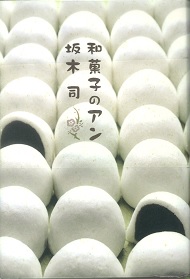 和菓子のアン
坂木司